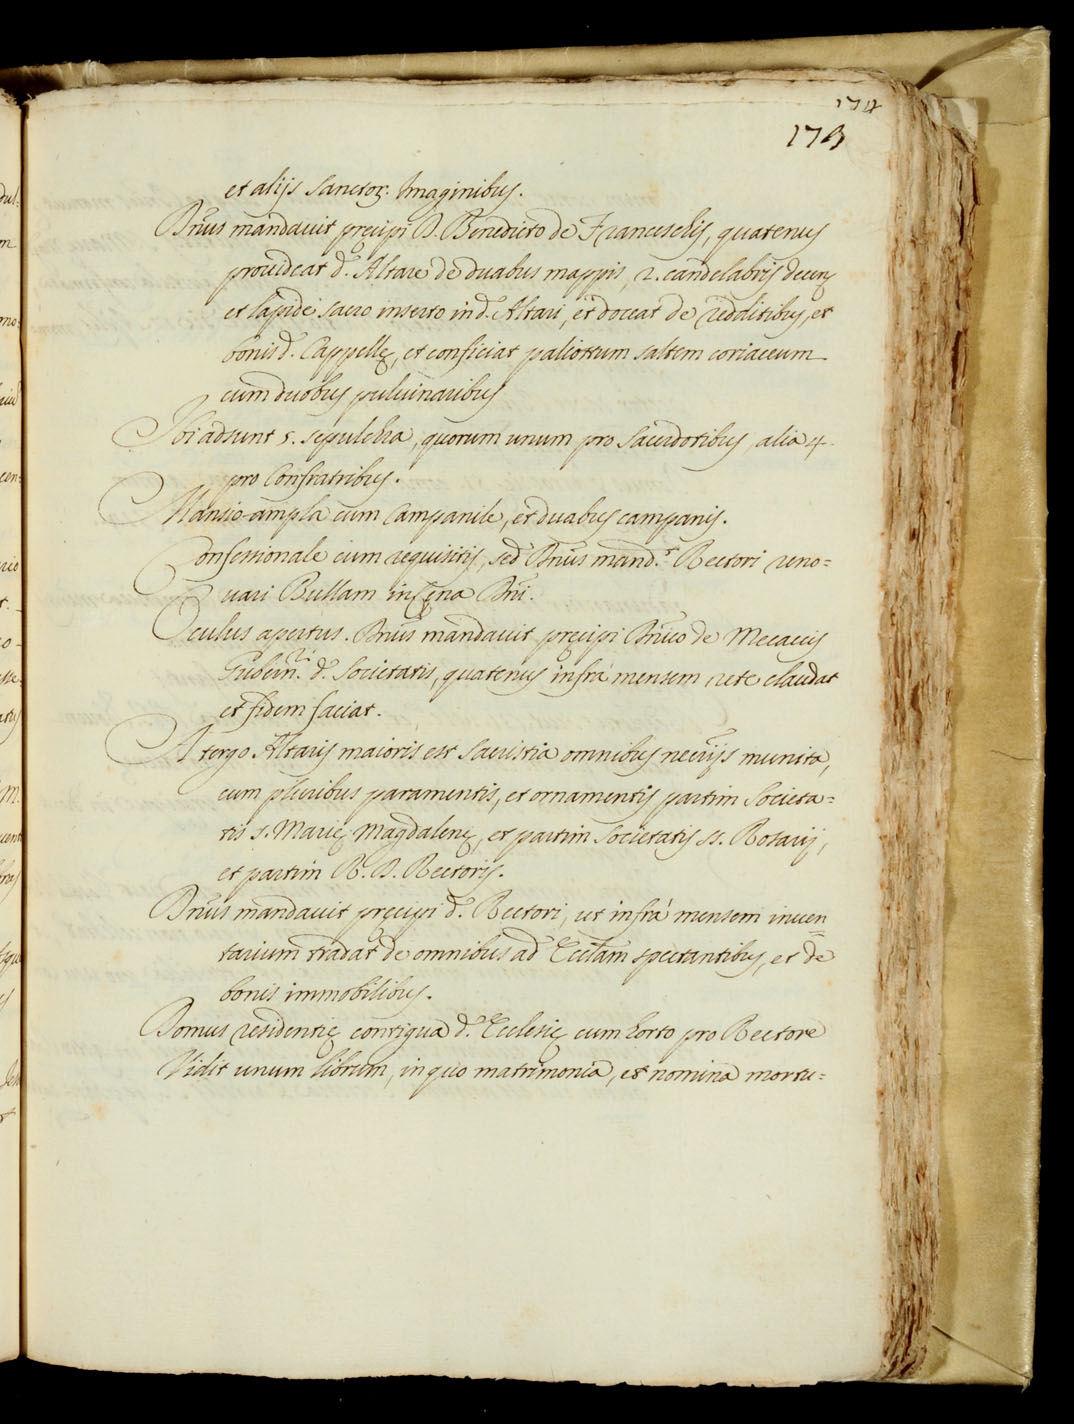 174
173
et alijs Sanctor: Imaginibus.
Dn̄us mandauit precipi D. Benedicto de Franceschis, quatenus
prouideat d. Altare de duabus mappis, 2. candelabris decen
et lapide sacro inserto in d. Altari, et doceat de redditibus, et
bonis d. Cappellę, et conficiat paliottum saltem coriaceum
cum duobus puluinaribus
Ibi adsunt 5. sepulchra, quorum unum pro Sacerdotibus, alia 4.
pro Confratribus.
Mansio ampla cum Campanile, et duabus campanis.
Confessionale cum requisitis, sed Dn̄us mand.t Rectori reno=
uari Bullam in Cęna Dn̄i.
Oculus apertus. Dn̄us mandauit pręcipi de Mecaciis
Gubern.ri d. Societatis, quatenus infrà mensem rete claudat
et fidem faciat.
A tergo Altaris maioris est Sacristia omnibus necrijs munita,
cum pluribus paramentis, et ornamentis partim Societa=
tis S. Marię Magdalenę, et partim Societatis SS. Rosarij,
et partim R. D. Rectoris.
Dn̄us mandauit pręcipi d. Rectori, ut infrà mensem inuen
tarium tradat de omnibus ad Eccl̄am spectantibus, et de
bonis immobilibus.
Domus residentię contigua d. Ecclesię cum horto pro Rectore
Vidit unum librum, in quo matrimonia, et nomina mortu=